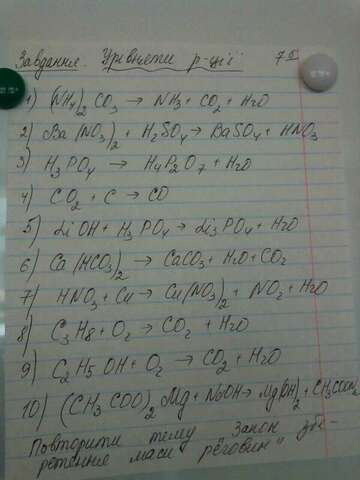 Завдання. Урівняти р-ції 7б
1) (NH4)2 CO3 → NH3 + CO2 + H2O
2) Ba(NO3)2 + H2SO4 → BaSO4 + HNO3
3) H3PO4 → H4P2O7 + H2O
4) CO2 + C → CO
5) LiOH + H3PO4 → Li3PO4 + H2O
6) Ca(HCO3)2 → CaCO3 + H2O + CO2
7) HNO3 + Cu → Cu(NO3)2 + NO2 + H2O
8) C3H8 + O2 → CO2 + H2O
9) C2H5OH + O2 → CO2 + H2O
10) (CH3COO)2Mg + NaOH → Mg(OH)2 +
Повторити тему "Закон збе-
реження маси речовин"